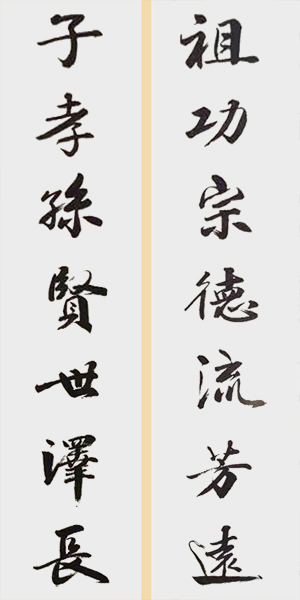 祖功宗德流芳遠
子孝孫賢世澤長